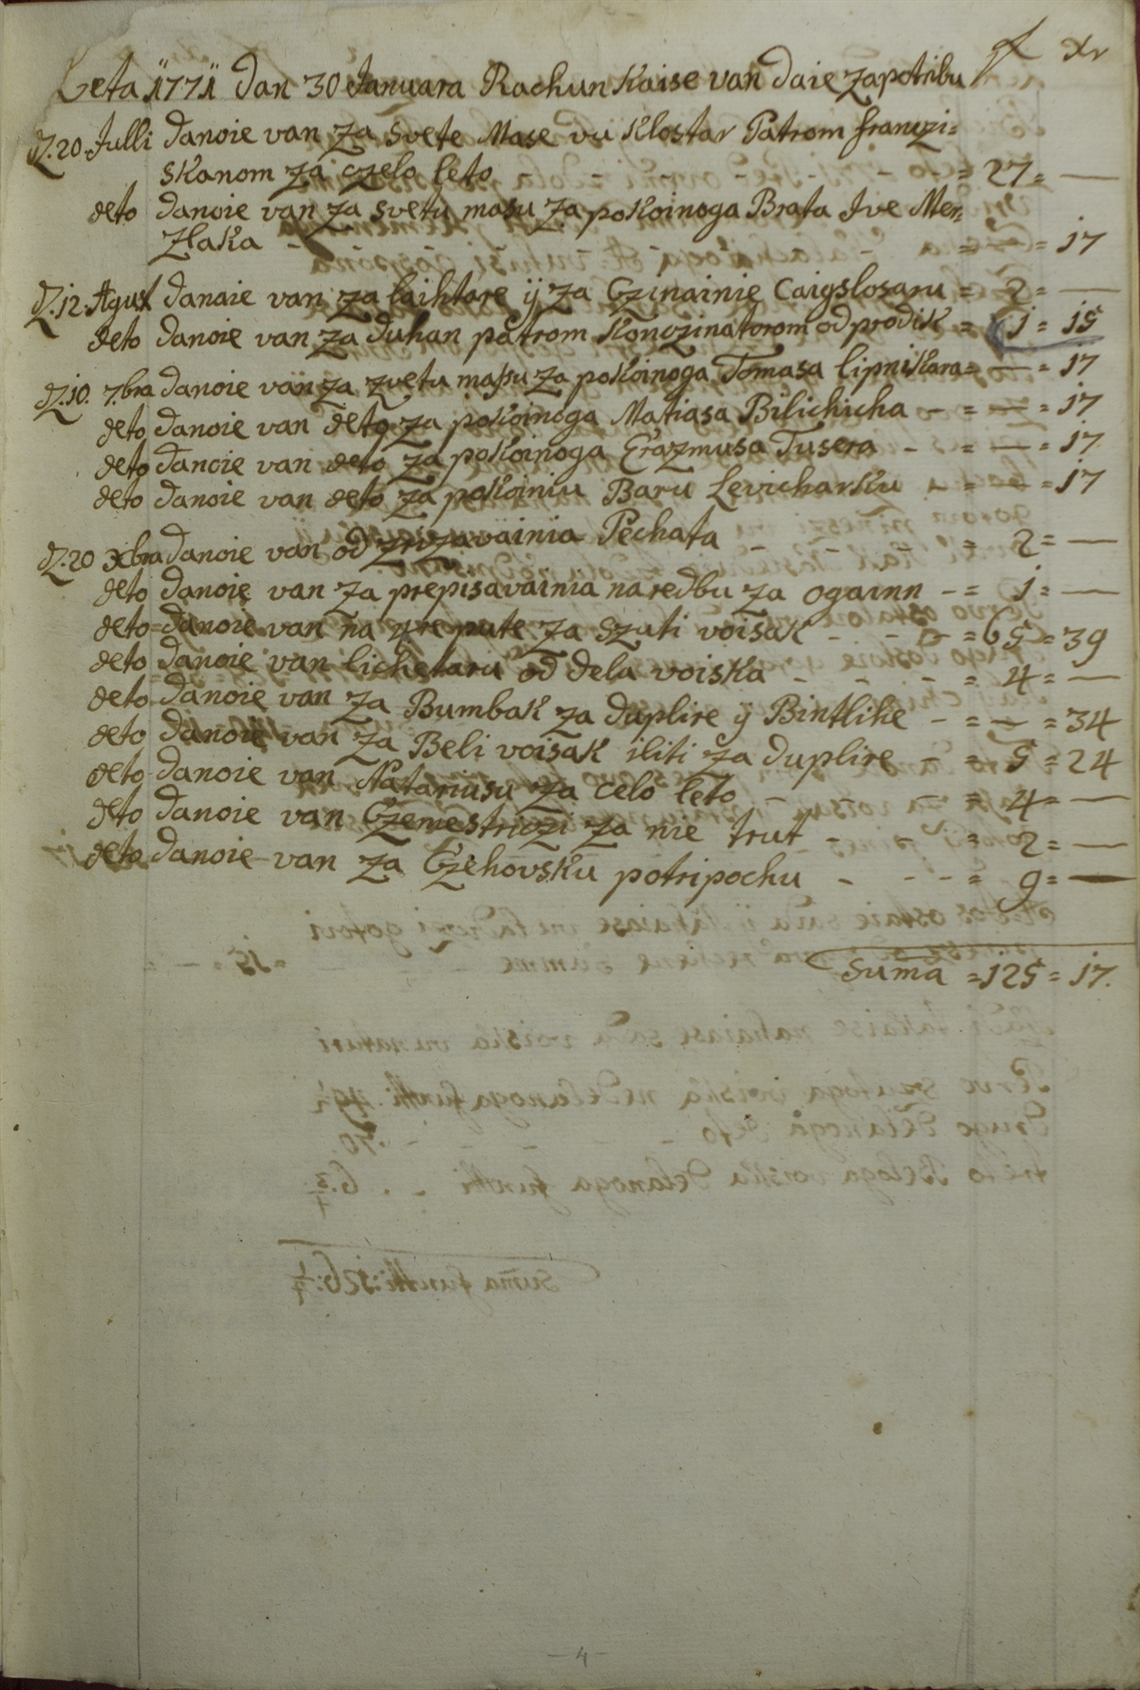 f Xr
Leta 1771 Dan 30 Januara Rachun kaise van daie zapotribu
dz. 20. Julli danoie van za svete Mase vu Klostar Patrom franczi=
skanom za czelo leto = 27 = —
deto danoie van za svetu masu za pokoinoga Brata Ive Mer,
zlaka = — = 17
dz. 12. Agust danaie van za laihtare ÿ za Czinainie Caigslosaru = 2 = —
deto danoie van za duhan patrom Konczinatorom od prodik = 1 = 15
dz. 10. 7bra danoie van za zvetu mahsu za pokoinoga Tomasa lipnikara = — = 17
deto danoie van deto za pokoinoga Matiasa Bilichicha - = — = 17
deto danoie van deto za pokoinoga Erazmusa Tusera - = — = 17.
deto danoie van deto za pokoiniu Baru Levicharku - = — = 17
dz. 20 Xbra danoie van od zvizavainia Pechata - = 2 = —
deto danoie van za prepisavainia naredbu za ogainn - = 1 = —
deto danoie van na tre pute za szuti voisak - - - = 65 = 39
deto danoie van lichetaru od dela voiska - - - = 4 = —
deto danoie van za Bumbak za duplire ÿ Bintlihe - = — = 34
deto danoie van za Beli voisak iliti za duplire - = 5 = 24
deto danoie van Natariusu za celo leto - - = 4 = —
deto danoie van Czemestriczi za nie trut - - = 2 = —
deto danoie van za Czehovsku potripochu - - - = 9 = —
Suma = 125 = 17.
- 4 -